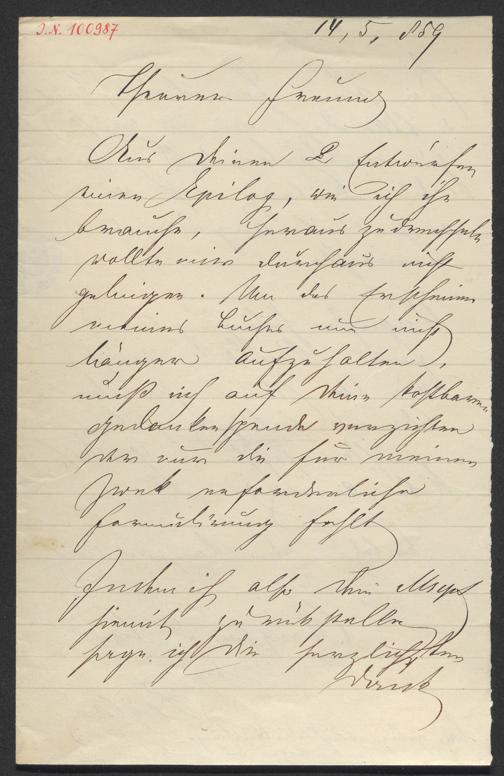 I.N. 100987
14, 5, 889
Theurer Freund
Aus Deinen 2 Entwürfen
einen Epilog, wie ich ihn
brauche, herauszudrechseln
wollte mir durchaus nicht
gelingen. Um das Erscheinen
meines Buches nun nicht
länger aufzuhalten,
muß ich auf Deine kostbaren
Gedankenspende verzichten
der nur die für meinen
Zwek erforderliche
Formulirung fehlt
Indem ich also Dein Mscpt
hiemit zurükstelle
sage ich Dir herzlichsten
Dank